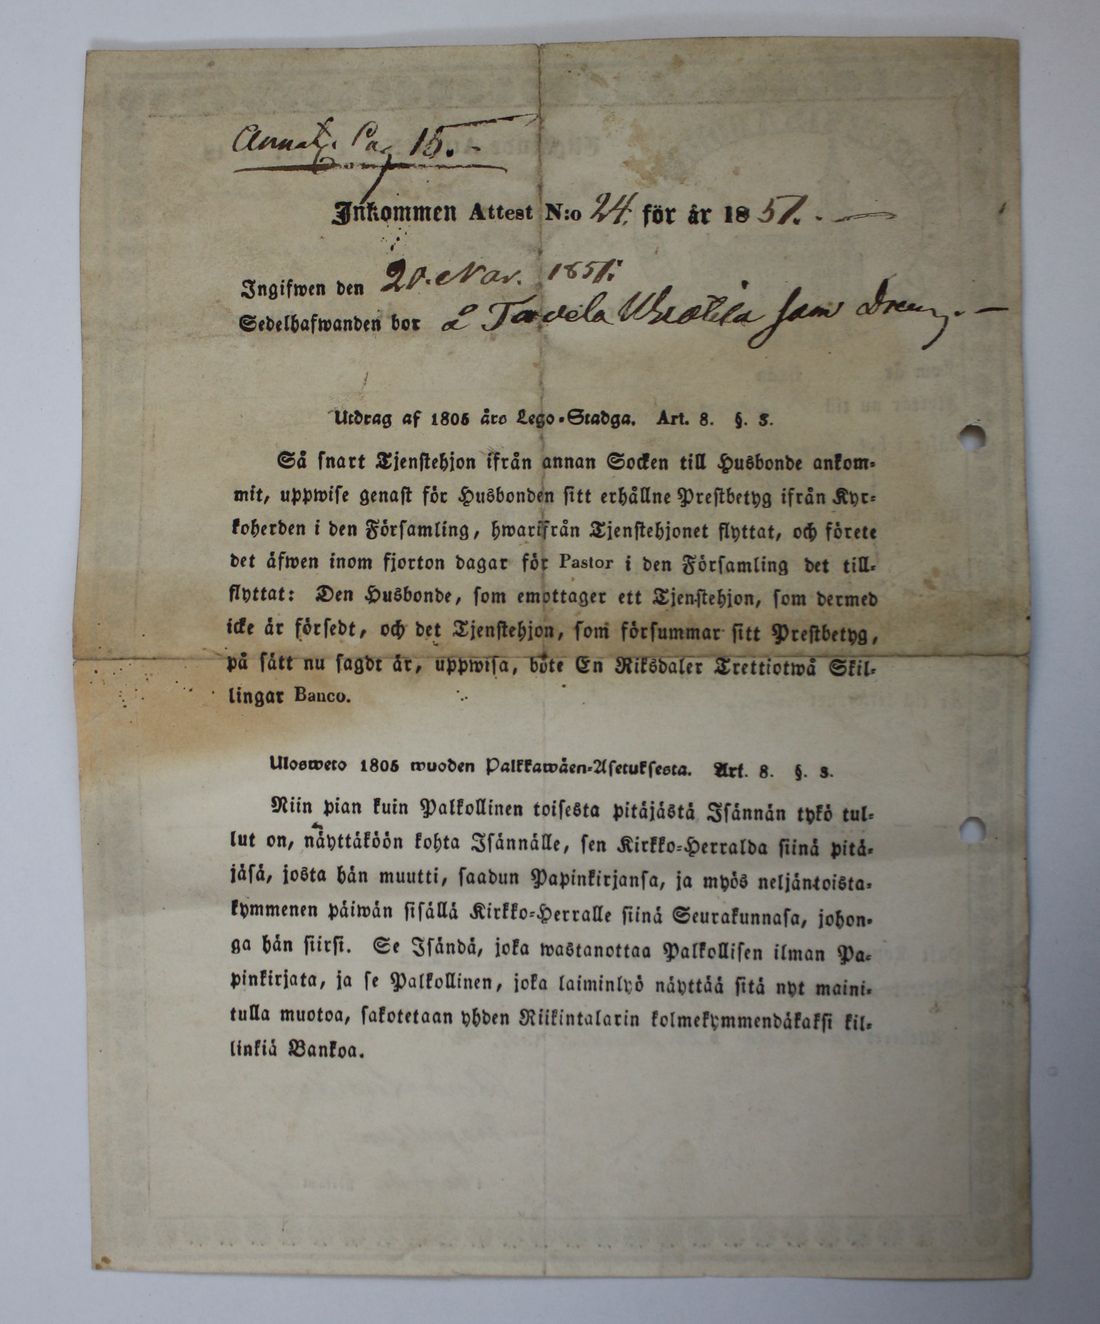 Pag 15.
Inkommen Attest N:o 24. för år 1851.
Ingifwen den 20. Nov. 1851.
Sedelhafwanden bor å Tavela som Dreng.
Utdrag af 1805 års Lego-Stadga. Art. 8. §. 3.
Så snart Tjenstehjon ifrån annan Socken till Husbonde ankom-
mit, uppwise genast för Husbonden sitt erhållne Prestbetyg ifrån Kyr-
koherden i den Församling, hwarifrån Tjenstehjonet flyttat, och förete
det äfwen inom fjorton dagar för Pastor i den Församling det till-
flyttat: Den Husbonde, som emottager ett Tjenstehjon, som dermed
icke är försedt, och det Tjenstehjon, som försummar sitt Prestbetyg,
på sätt nu sagdt är, uppwisa, böte En Riksdaler Trettiotwå Skil-
lingar Banco.
Ulosweto 1805 wuoden Palkkawäen-Asetuksesta. Art. 8. §. 3.
Niin pian kuin Palkollinen toisesta pitäjästä Isännän tykö tul-
lut on, näyttäköön kohta Isännälle, sen Kirkko-Herralda siinä pitä-
jäsä, josta hän muutti, saadun Papinkirjansa, ja myös neljäntoista-
kymmenen päiwän sisällä Kirkko-Herralle siinä Seurakunnasa, johon-
ga hän siirsi. Se Isändä, joka wastanottaa Palkollisen ilman Pa-
pinkirjata, ja se Palkollinen, joka laiminlyö näyttää sitä nyt maini-
tulla muotoa, sakotetaan yhden Riikintalarin kolmekymmendäkaksi kil-
linkiä Bankoa.